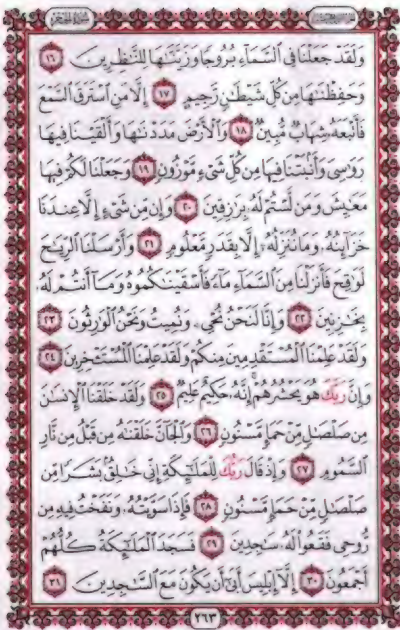 سُورَةُ الْحِجْرِ
وَلَقَدْ جَعَلْنَا فِى السَّمَآءِ بُرُوجًا وَزَيَّنَّـٰهَا لِلنَّـٰظِرِينَ ١٦
وَحَفِظْنَـٰهَا مِن كُلِّ شَيْطَـٰنٍ رَّجِيمٍ ١٧ إِلَّا مَنِ اسْتَرَقَ السَّمْعَ
فَأَتْبَعَهُۥ شِهَابٌ مُّبِينٌ ١٨ وَالْأَرْضَ مَدَدْنَـٰهَا وَأَلْقَيْنَا فِيهَا
رَوَٰسِىَ وَأَنۢبَتْنَا فِيهَا مِن كُلِّ شَىْءٍ مَّوْزُونٍ ١٩ وَجَعَلْنَا لَكُمْ فِيهَا
مَعَـٰيِشَ وَمَن لَّسْتُمْ لَهُۥ بِرَٰزِقِينَ ٢٠ وَإِن مِّن شَىْءٍ إِلَّا عِندَنَا
خَزَآئِنُهُۥ وَمَا نُنَزِّلُهُۥٓ إِلَّا بِقَدَرٍ مَّعْلُومٍ ٢١ وَأَرْسَلْنَا الرِّيَـٰحَ
لَوَٰقِحَ فَأَنزَلْنَا مِنَ السَّمَآءِ مَآءً فَأَسْقَيْنَـٰكُمُوهُ وَمَآ أَنتُمْ لَهُۥ
بِخَـٰزِنِينَ ٢٢ وَإِنَّا لَنَحْنُ نُحْىِۦ وَنُمِيتُ وَنَحْنُ الْوَٰرِثُونَ ٢٣
وَلَقَدْ عَلِمْنَا الْمُسْتَقْدِمِينَ مِنكُمْ وَلَقَدْ عَلِمْنَا الْمُسْتَـْٔخِرِينَ ٢٤
وَإِنَّ رَبَّكَ هُوَ يَحْشُرُهُمْ إِنَّهُۥ حَكِيمٌ عَلِيمٌ ٢٥ وَلَقَدْ خَلَقْنَا الْإِنسَـٰنَ
مِن صَلْصَـٰلٍ مِّنْ حَمَإٍ مَّسْنُونٍ ٢٦ وَالْجَآنَّ خَلَقْنَـٰهُ مِن قَبْلُ مِن نَّارِ
السَّمُومِ ٢٧ وَإِذْ قَالَ رَبُّكَ لِلْمَلَـٰٓئِكَةِ إِنِّى خَـٰلِقٌۢ بَشَرًا مِّن
صَلْصَـٰلٍ مِّنْ حَمَإٍ مَّسْنُونٍ ٢٨ فَإِذَا سَوَّيْتُهُۥ وَنَفَخْتُ فِيهِ مِن
رُّوحِى فَقَعُوا لَهُۥ سَـٰجِدِينَ ٢٩ فَسَجَدَ الْمَلَـٰٓئِكَةُ كُلُّهُمْ
أَجْمَعُونَ ٣٠ إِلَّآ إِبْلِيسَ أَبَىٰٓ أَن يَكُونَ مَعَ السَّـٰجِدِينَ ٣١
٢٦٣